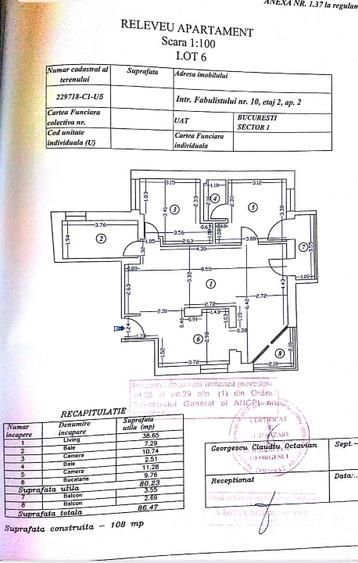 ANEXA NR. 1.37 la regulam
RELEVEU APARTAMENT
Scara 1:100
LOT 6
Numar cadastral al terenului
Suprafata
Adresa imobilului
229718-C1-U5
Intr. Fabulistului nr. 10, etaj 2, ap. 2
Cartea Funciara colectiva nr.
UAT
BUCURESTI SECTOR 1
Cod unitate individuala (U)
Cartea Funciara individuala
3.15
1.18
3.12
1.03
3.41
2.33
2.33
3.30
3
4
5
3.76
3.56
3.88
2
1.94
1.05
4.30
7
3.80
8.55
4.43
2.63
1
2.42
2.72
2.72
0.91
1.03
6
2.10
8
RECAPITULATIE
Numar incapere
Denumire incapare
Suprafata utila (mp)
1 Living 38.65
2 Baie 7.29
3 Camera 10.74
4 Baie 2.51
5 Camera 11.28
6 Bucatarie 9.76
Suprafata utila 80.23
7 Balcon 3.55
8 Balcon 2.69
Suprafata totala 86.47
Suprafata construita - 108 mp
CERTIFICAT
Georgescu Claudiu, Octavian
Sept.-
GEORGESCU
Receptionat
Data:..